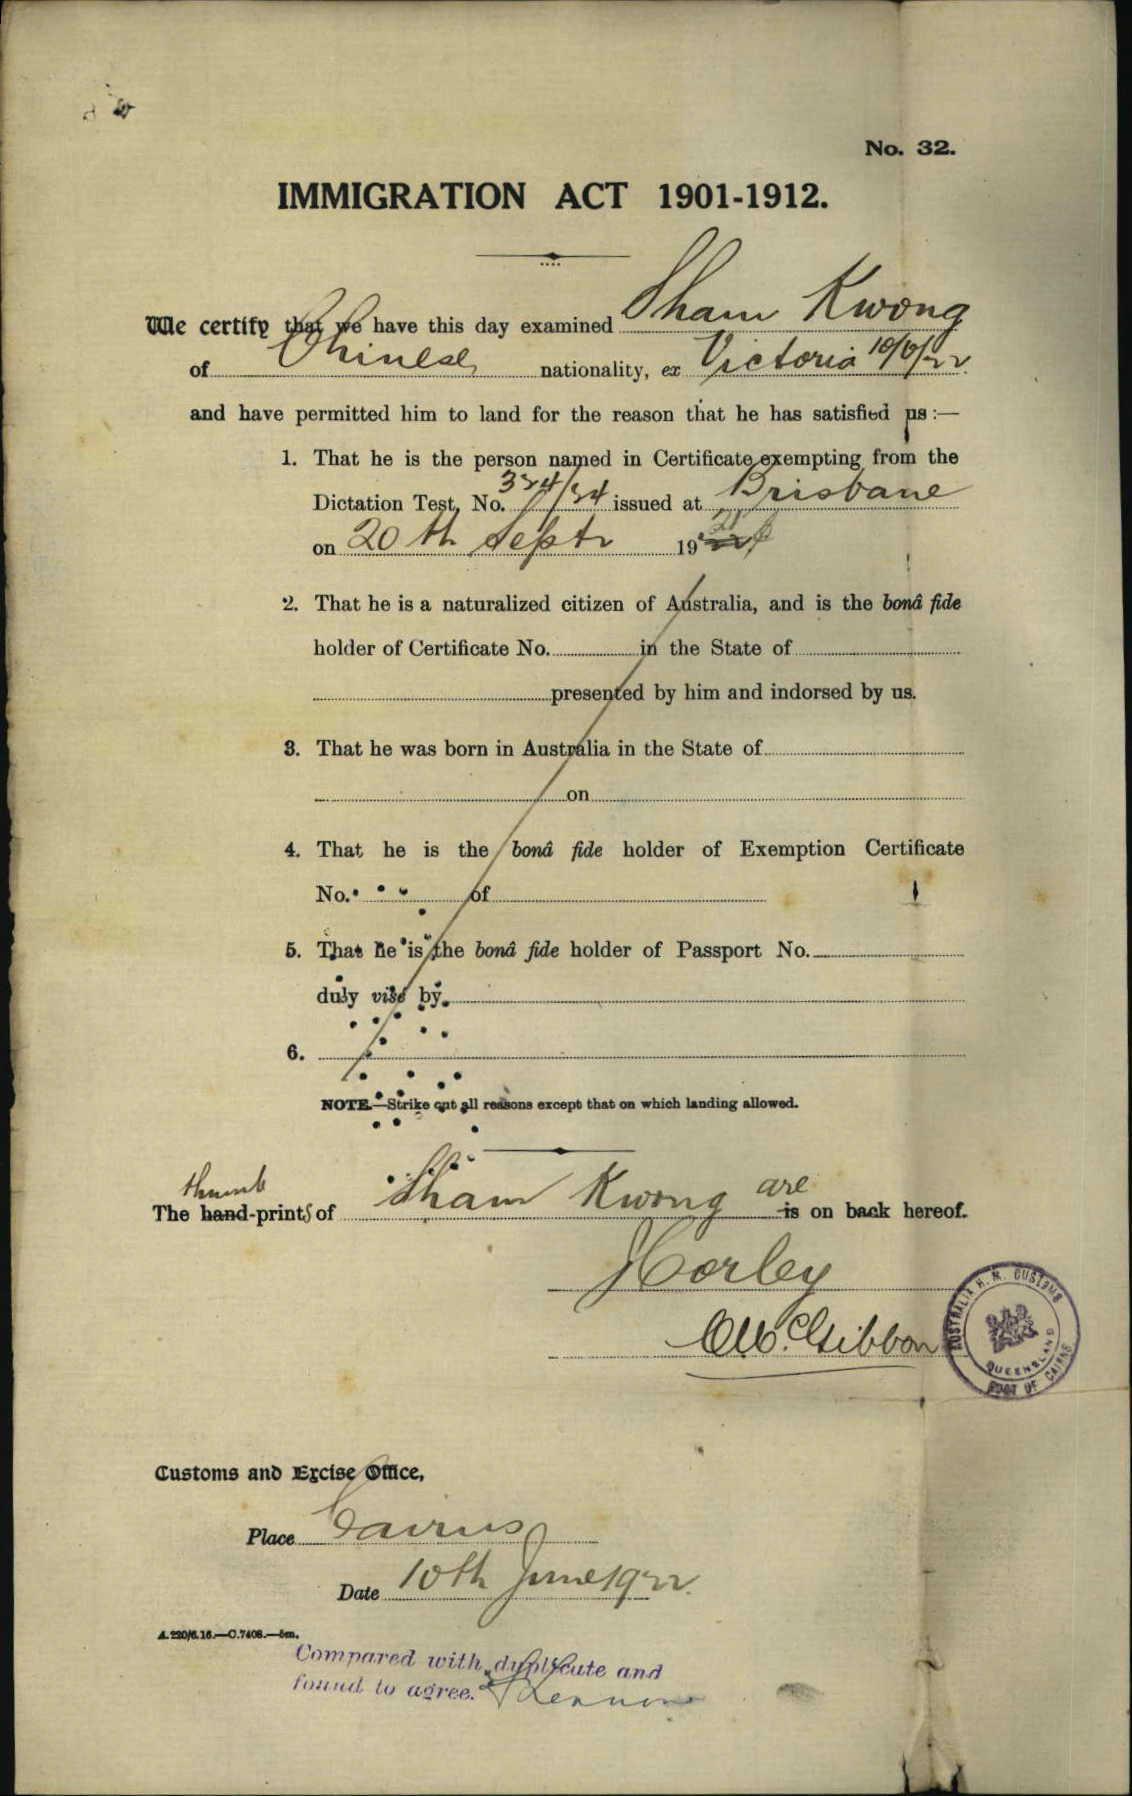 No. 32.
IMMIGRATION ACT 1901-1912.
We certify that we have this day examined Sham Kwong
of Chinese nationality, ex Victoria 10/6/22.
and have permitted him to land for the reason that he has satisfied us:—
1. That he is the person named in Certificate exempting from the
Dictation Test, No. 324/34 issued at Brisbane
on 20th Septr 19
2. That he is a naturalized citizen of Australia, and is the bonâ fide
holder of Certificate No. in the State of
presented by him and indorsed by us.
3. That he was born in Australia in the State of
on
4. That he is the bonâ fide holder of Exemption Certificate
No. of
5. That he is the bonâ fide holder of Passport No.
duly visé by
6.
NOTE.—Strike out all reasons except that on which landing allowed.
thumb
The hand-prints of Sham Kwong are is on back hereof.
Horley
McGibbon
AUSTRALIA H. M. CUSTOMS
QUEENSLAND
PORT OF CAIRNS
Customs and Excise Office,
Place Cairns
Date 10th June 1922.
A.220/6.16.—C.7408.—5m.
Compared with duplicate and
found to agree.